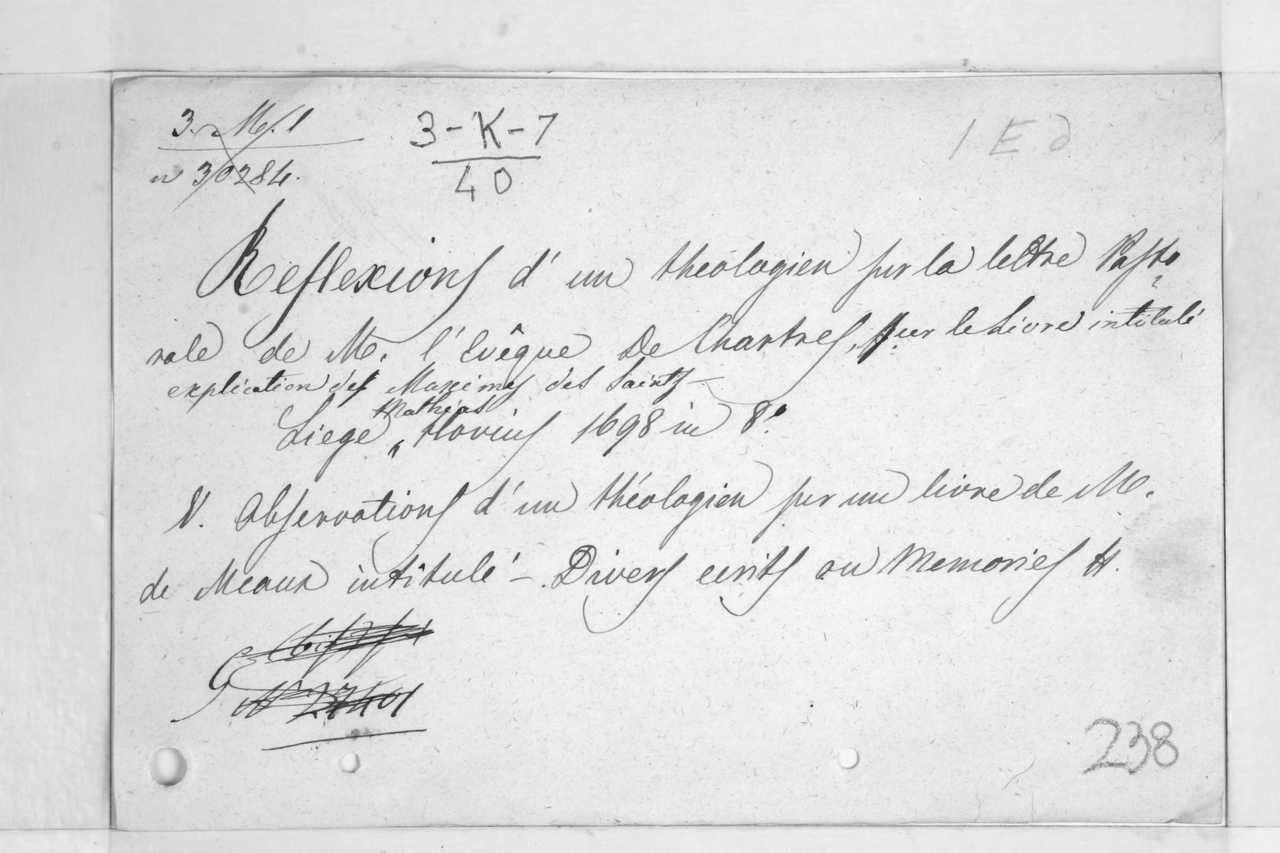 3. M. 1
n 30284.
3-K-7
40
Reflexions d'un théologien sur la lettre Pasto
rale de M. l'Evêque De Chartres, sur le Livre intitulé
explication des Maximes des Saints —
Mathias
Liege, Hovius 1698 in 8°
V. Observations d'un théologien sur un livre de M.
de Meaux intitulé — Divers ecrits ou Memories
N° 27401
238